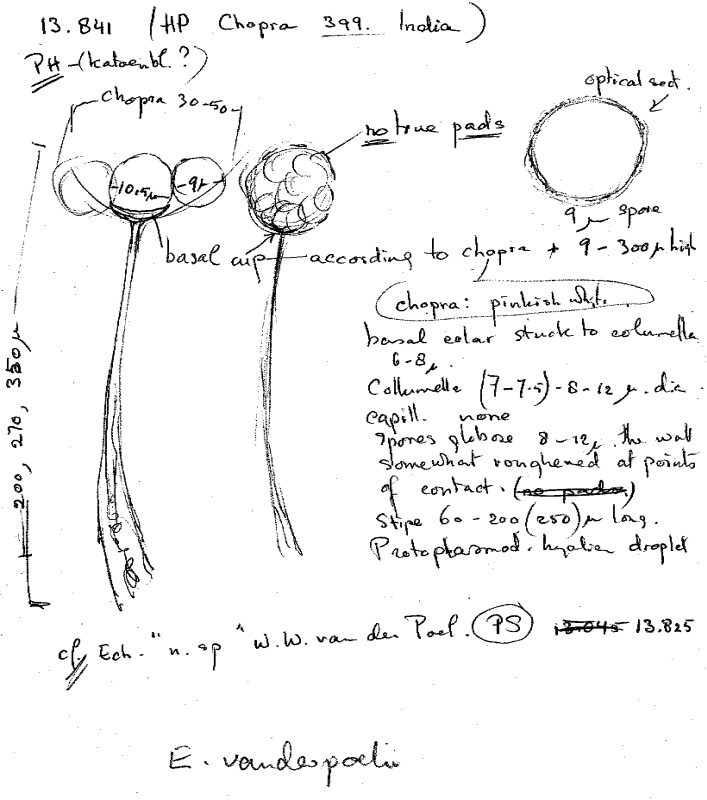 13.841 (HP Chopra 399. India)
PH - (Kataenbl.?)
Chopra 30-50
optical sect.
no true pads
10.5µ
9µ
9 µ spore
basal cup according to chopra + 9 - 300µ high
chopra: pinkish
basal colar stuck to columella
6-8µ.
Collumelle (7-7.5)-8-12 µ. dia.
capill. none
spores globose 8-12µ. the wall
somewhat roughened at points
of contact. (no pads)
Stipe 60-200 (250) µ long.
Protoplasmod. hyalin droplet
200, 270, 350µ
cf. Ech. "n. sp" W.W. van der Poel. PS 13.045 13.825
E. vanderpoelii